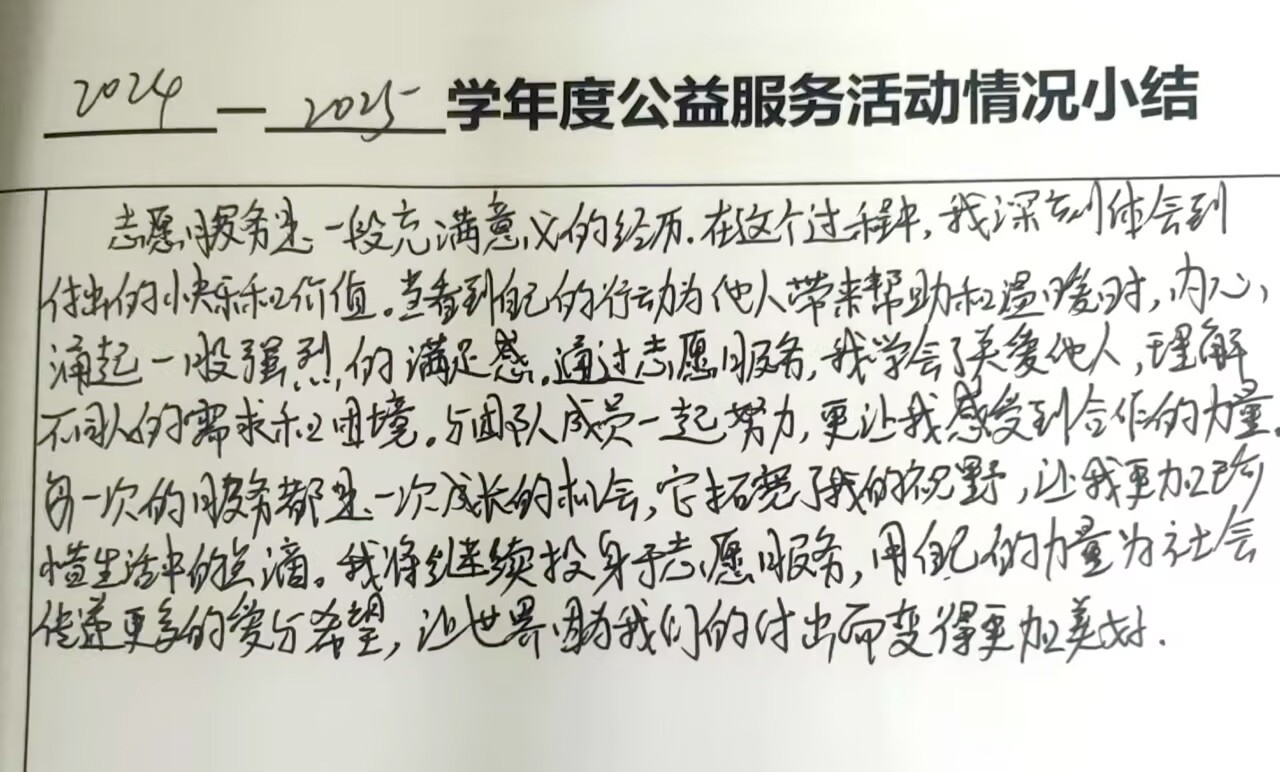 2024—2025学年度公益服务活动情况小结
志愿服务是一段充满意义的经历.在这个过程中,我深刻体会到
付出的快乐和价值。当看到自己的行动为他人带来帮助和温暖时,内心
涌起一股强烈的满足感。通过志愿服务,我学会了关爱他人,理解
不同人的需求和困境。与团队成员一起努力,更让我感受到合作的力量。
每一次的服务都是一次成长的机会,它拓宽了我的视野,让我更加珍
惜生活中的点滴。我将继续投身于志愿服务,用自己的力量为社会
传递更多的爱与希望,让世界因为我们的付出而变得更加美好.